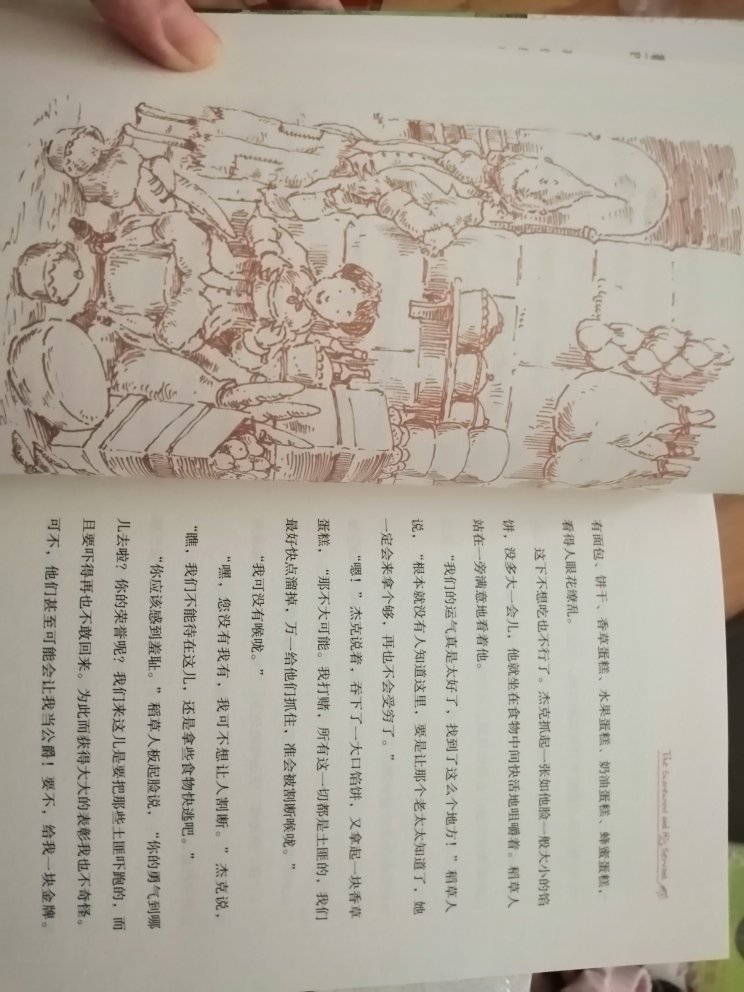 The Scarecrow and His Servant
有面包、饼干、香草蛋糕、水果蛋糕、奶油蛋糕、蜂蜜蛋糕，
看得人眼花缭乱。
这下不想吃也不行了。杰克抓起一张如他脸一般大小的馅
饼，没多大一会儿，他就坐在食物中间快活地咀嚼着。稻草人
站在一旁满意地看着他。
“我们的运气真是太好了，找到了这么个地方！”稻草人
说，“根本就没有人知道这里，要是让那个老太太知道了，她
一定会来拿个够，再也不会受穷了。”
“嗯！”杰克说着，吞下了一大口馅饼，又拿起一块香草
蛋糕，“那不大可能。我打赌，所有这一切都是土匪的，我们
最好快点溜掉，万一给他们抓住，准会被割断喉咙。”
“我可没有喉咙。”
“嘿，您没有我有，我可不想让人割断。”杰克说，
“瞧，我们不能待在这儿，还是拿些食物快逃吧。”
“你应该感到羞耻。”稻草人板起脸说，“你的勇气到哪
儿去啦？你的荣誉呢？我们来这儿是要把那些土匪吓跑的，而
且要吓得再也不敢回来。为此而获得大大的表彰我也不奇怪。
可不，他们甚至可能会让我当公爵！要不，给我一块金牌。